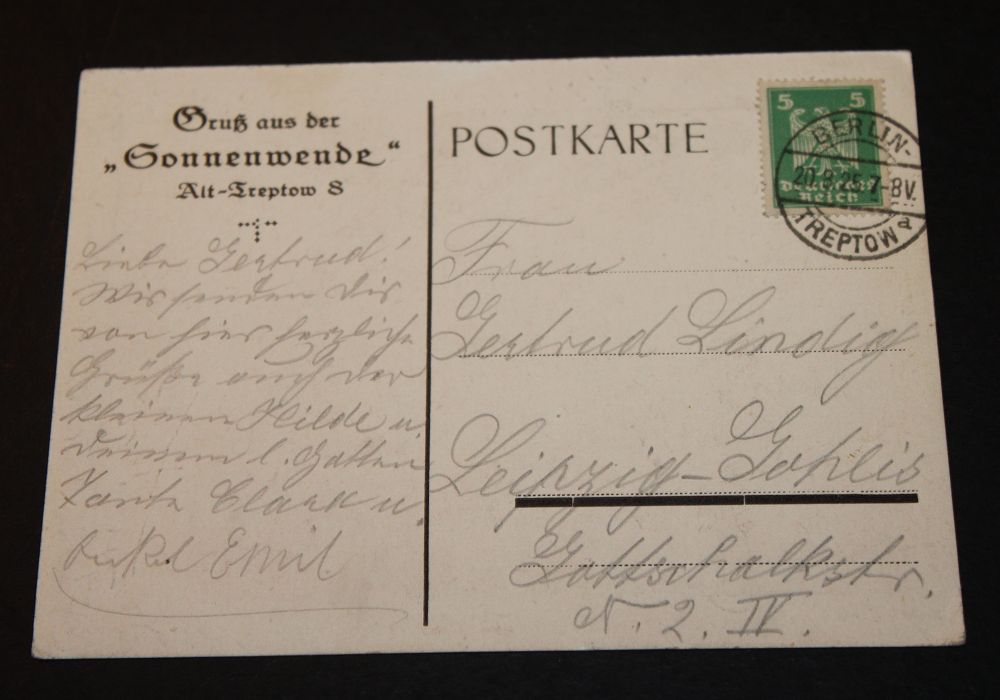 Gruß aus der
„Sonnenwende“
Alt-Treptow 8
POSTKARTE
5 5
Deutsches
Reich
BERLIN-
TREPTOW a
20.8.25.7-8V.
Liebe Gertrud!
Wir senden Dir
von hier herzliche
Grüße auch der
kleinen Hilde u.
Deinem l. Gatten
Tante Clara u.
Onkel Emil
Frau
Gertrud Lindig
Leipzig-Gohlis
Gottschalkstr.
N. 2. IV.